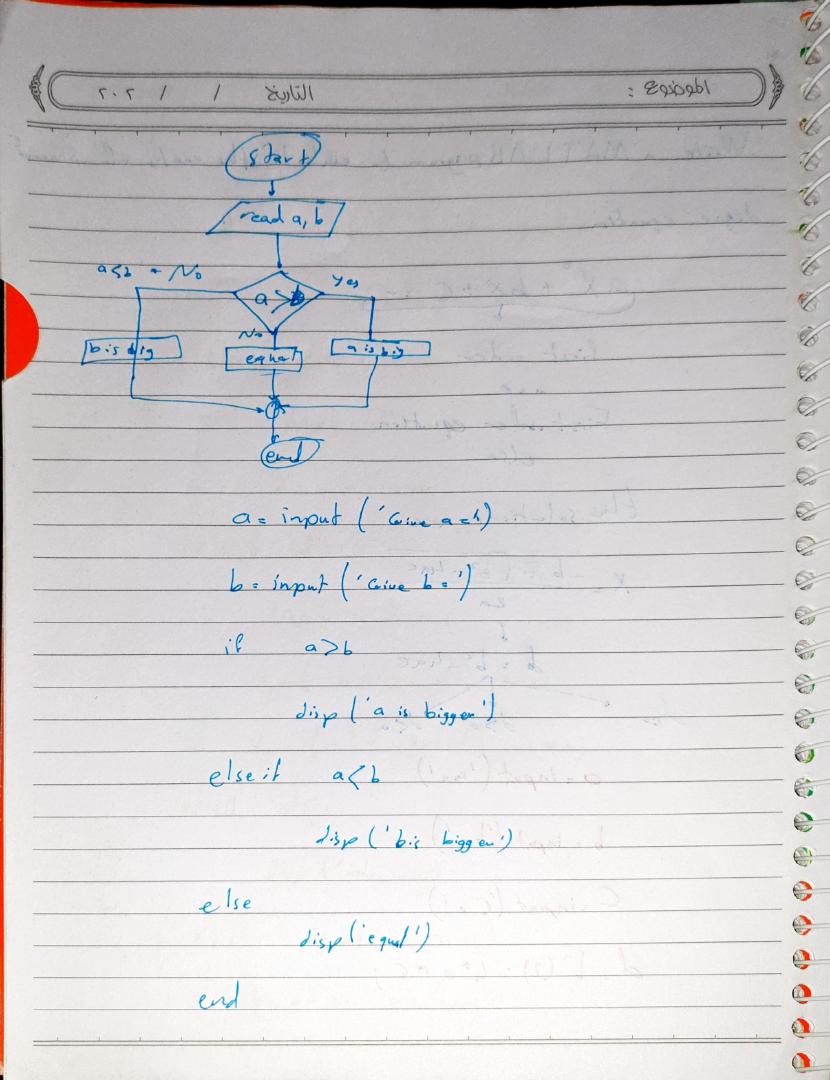 الموضوع :
التاريخ / / ٢٠٢
start
read a, b
a<b - No
a>b
yes
No
b is big
equal
a is big
end
a = input ('Give a =')
b = input ('Give b =')
if a>b
disp ('a is bigger')
elseif a<b
disp ('b is bigger')
else
disp ('equal')
end